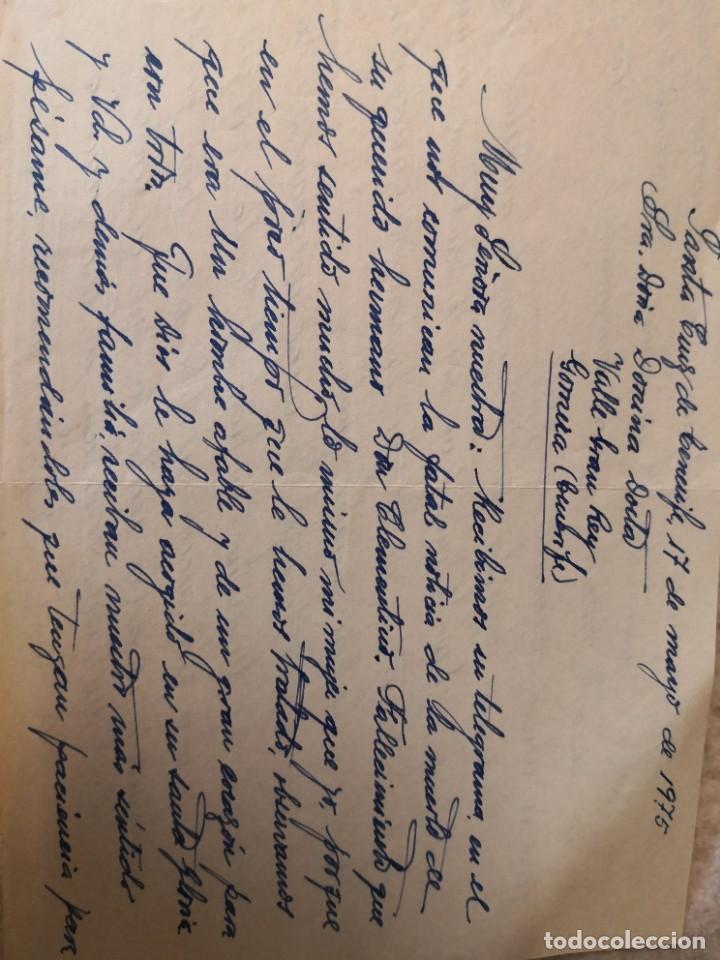 Santa Cruz de Tenerife, 17 de mayo de 1975
Sra. Doña Donina Dorta
Valle Gran Rey
Gomera (Tenerife)
Muy Señora nuestra: Recibimos su telegrama, en el
que nos comunican la fatal noticia de la muerte de
su querido hermano Don Clementino. Fallecimiento que
hemos sentido mucho, lo mismo mi mujer que yo, porque
en el poco tiempo que le hemos tratado, observamos
que era un hombre afable y de un gran corazón para
con todos. Que Dios le haya acogido en su santa Gloria
y Vd. y demás familia, reciban nuestro más sentido
pésame, recomendándoles que tengan paciencia para
todocoleccion.net